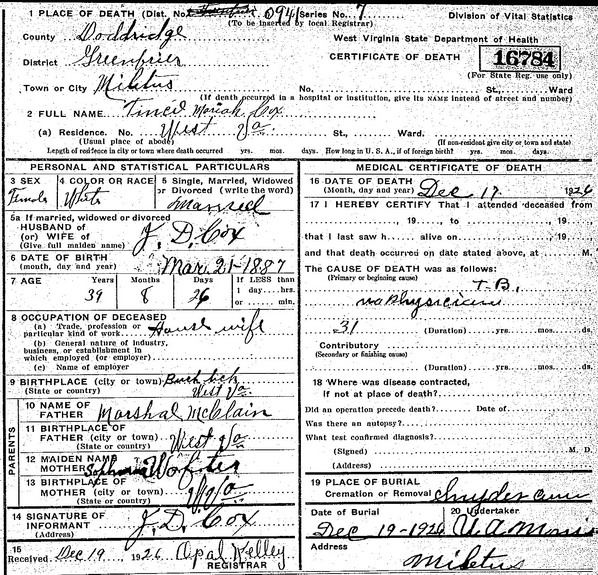 1 PLACE OF DEATH (Dist. No. 0941 Series No. 7 Division of Vital Statistics
(To be inserted by local Registrar)
County Doddridge West Virginia State Department of Health
District Greenbrier CERTIFICATE OF DEATH 16784
(For State Reg. use only)
Town or City Miletus No. St., Ward
(If death occurred in a hospital or institution, give its NAME instead of street and number)
2 FULL NAME Mariah Cox
(a) Residence. No. West Va. St., Ward.
(Usual place of abode) (If non-resident give city or town and state)
Length of residence in city or town where death occurred yrs. mos. days. How long in U. S. A., if of foreign birth? yrs. mos. days.
PERSONAL AND STATISTICAL PARTICULARS
3 SEX 4 COLOR OR RACE 5 Single, Married, Widowed
or Divorced (write the word)
Female White Married
5a If married, widowed or divorced
HUSBAND of
(or) WIFE of J. D. Cox
(Give full maiden name)
6 DATE OF BIRTH
(month, day and year) Mar 21-1887
7 AGE Years Months Days If LESS than
39 8 26 1 day....hrs.
or......min.
8 OCCUPATION OF DECEASED
(a) Trade, profession or
particular kind of work House wife
(b) General nature of industry,
business, or establishment in
which employed (or employer)
(c) Name of employer
9 BIRTHPLACE (city or town)
(State or country) West Va
PARENTS
10 NAME OF
FATHER Marshal McClain
11 BIRTHPLACE OF
FATHER (city or town) West Va
(State or country)
12 MAIDEN NAME
MOTHER
13 BIRTHPLACE OF
MOTHER (city or town) W Va
(State or country)
14 SIGNATURE OF
INFORMANT J. D. Cox
(Address)
15
Received Dec 19, 1926 Opal Kelley
REGISTRAR
MEDICAL CERTIFICATE OF DEATH
16 DATE OF DEATH
(Month, day and year) Dec 17 1926
17 I HEREBY CERTIFY That I attended deceased from
, 19...., to , 19....
that I last saw h.... alive on , 19....
and that death occurred on date stated above, at M.
The CAUSE OF DEATH was as follows:
(Primary or beginning cause) T.B.
no Physician
31 (Duration) yrs. mos. ds.
Contributory
(Secondary or finishing cause)
(Duration) yrs. mos. ds.
18 Where was disease contracted,
if not at place of death?
Did an operation precede death? Date of
Was there an autopsy?
What test confirmed diagnosis?
(Signed) M. D.
(Address)
19 PLACE OF BURIAL
Cremation or Removal Snyder Cem
Date of Burial 20 Undertaker
Dec 19-1926 U. A. Morris
Address
Miletus